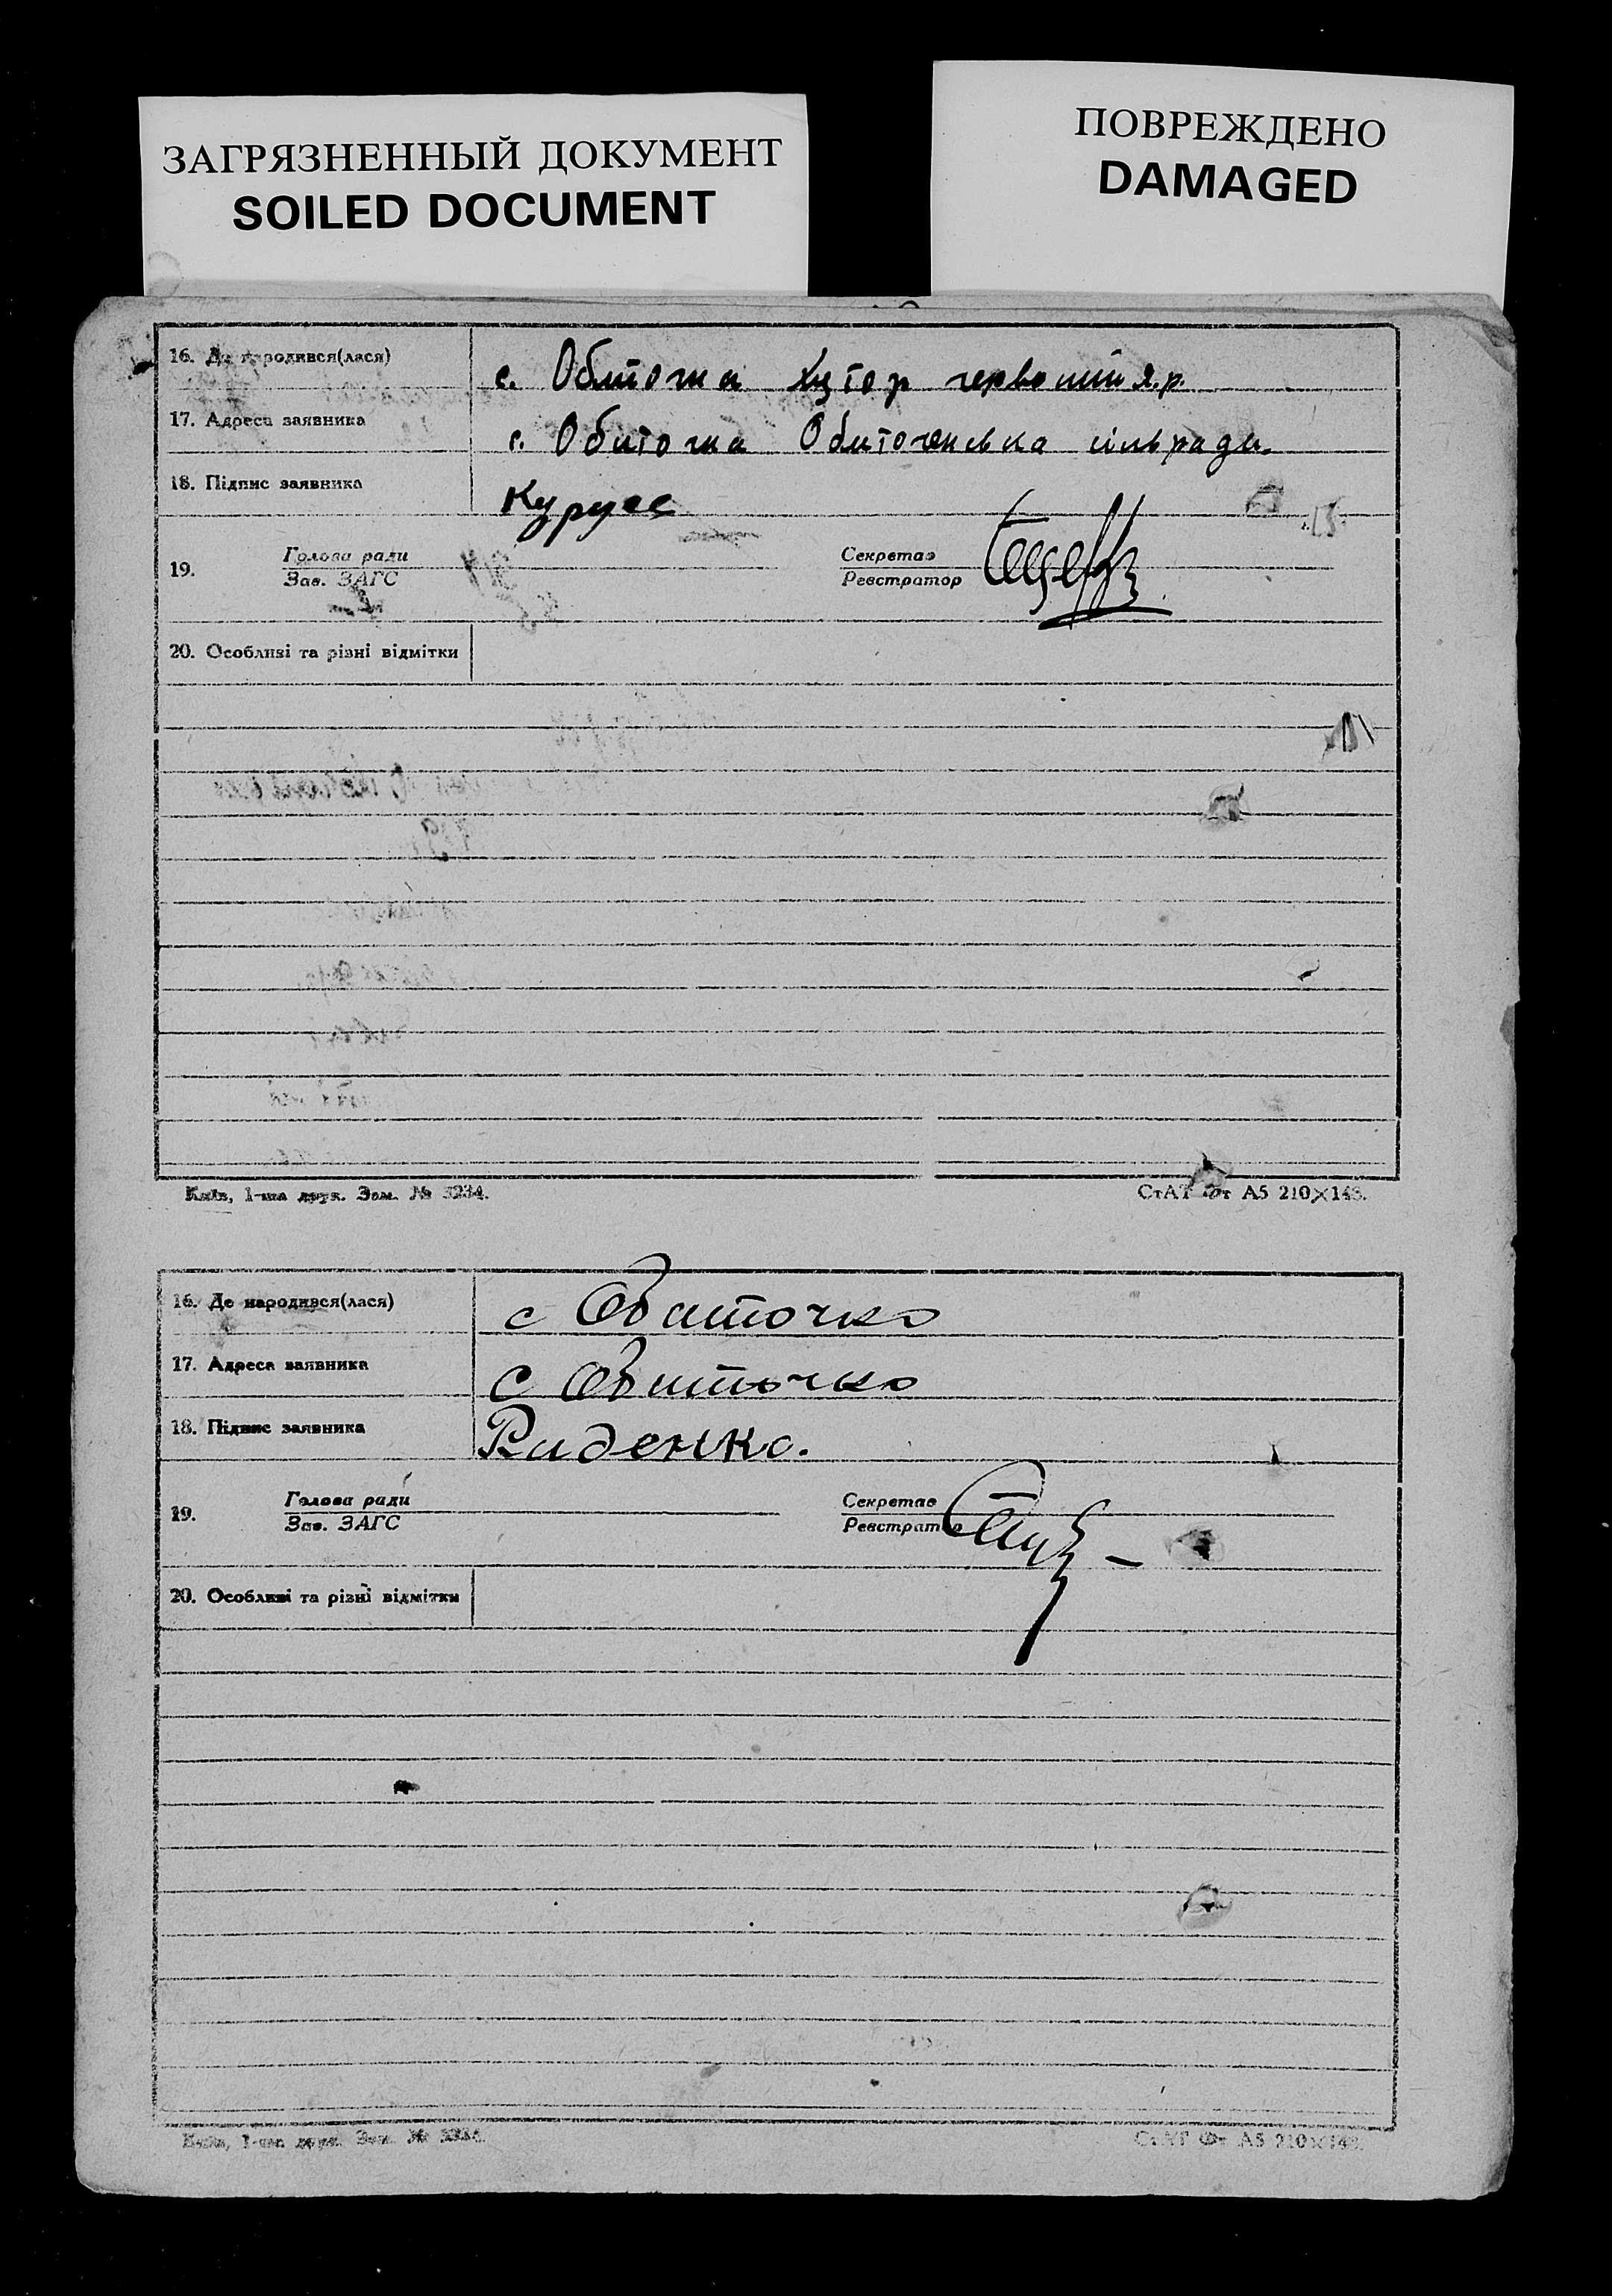 ЗАГРЯЗНЕННЫЙ ДОКУМЕНТ
SOILED DOCUMENT
ПОВРЕЖДЕНО
DAMAGED
16. Де народився(лася) с. Обиточна Хутор червоний я.р.
17. Адреса заявника с. Обиточна Обиточенська сільради.
18. Підпис заявника Курусс
19. Голова ради Секретар
Зав. ЗАГС Реєстратор
20. Особливі та різні відмітки
Київ, 1-ша друк. Зам. № 3234. СтАТ Фт А5 210×148.
16. Де народився(лася) с Обиточно
17. Адреса заявника с Обиточно
18. Підпис заявника Риденко.
19. Голова ради Секретар
Зав. ЗАГС Реєстратор
20. Особливі та різні відмітки
Київ, 1-ша друк. Зам. № 3234. СтАТ Фт А5 210×148.